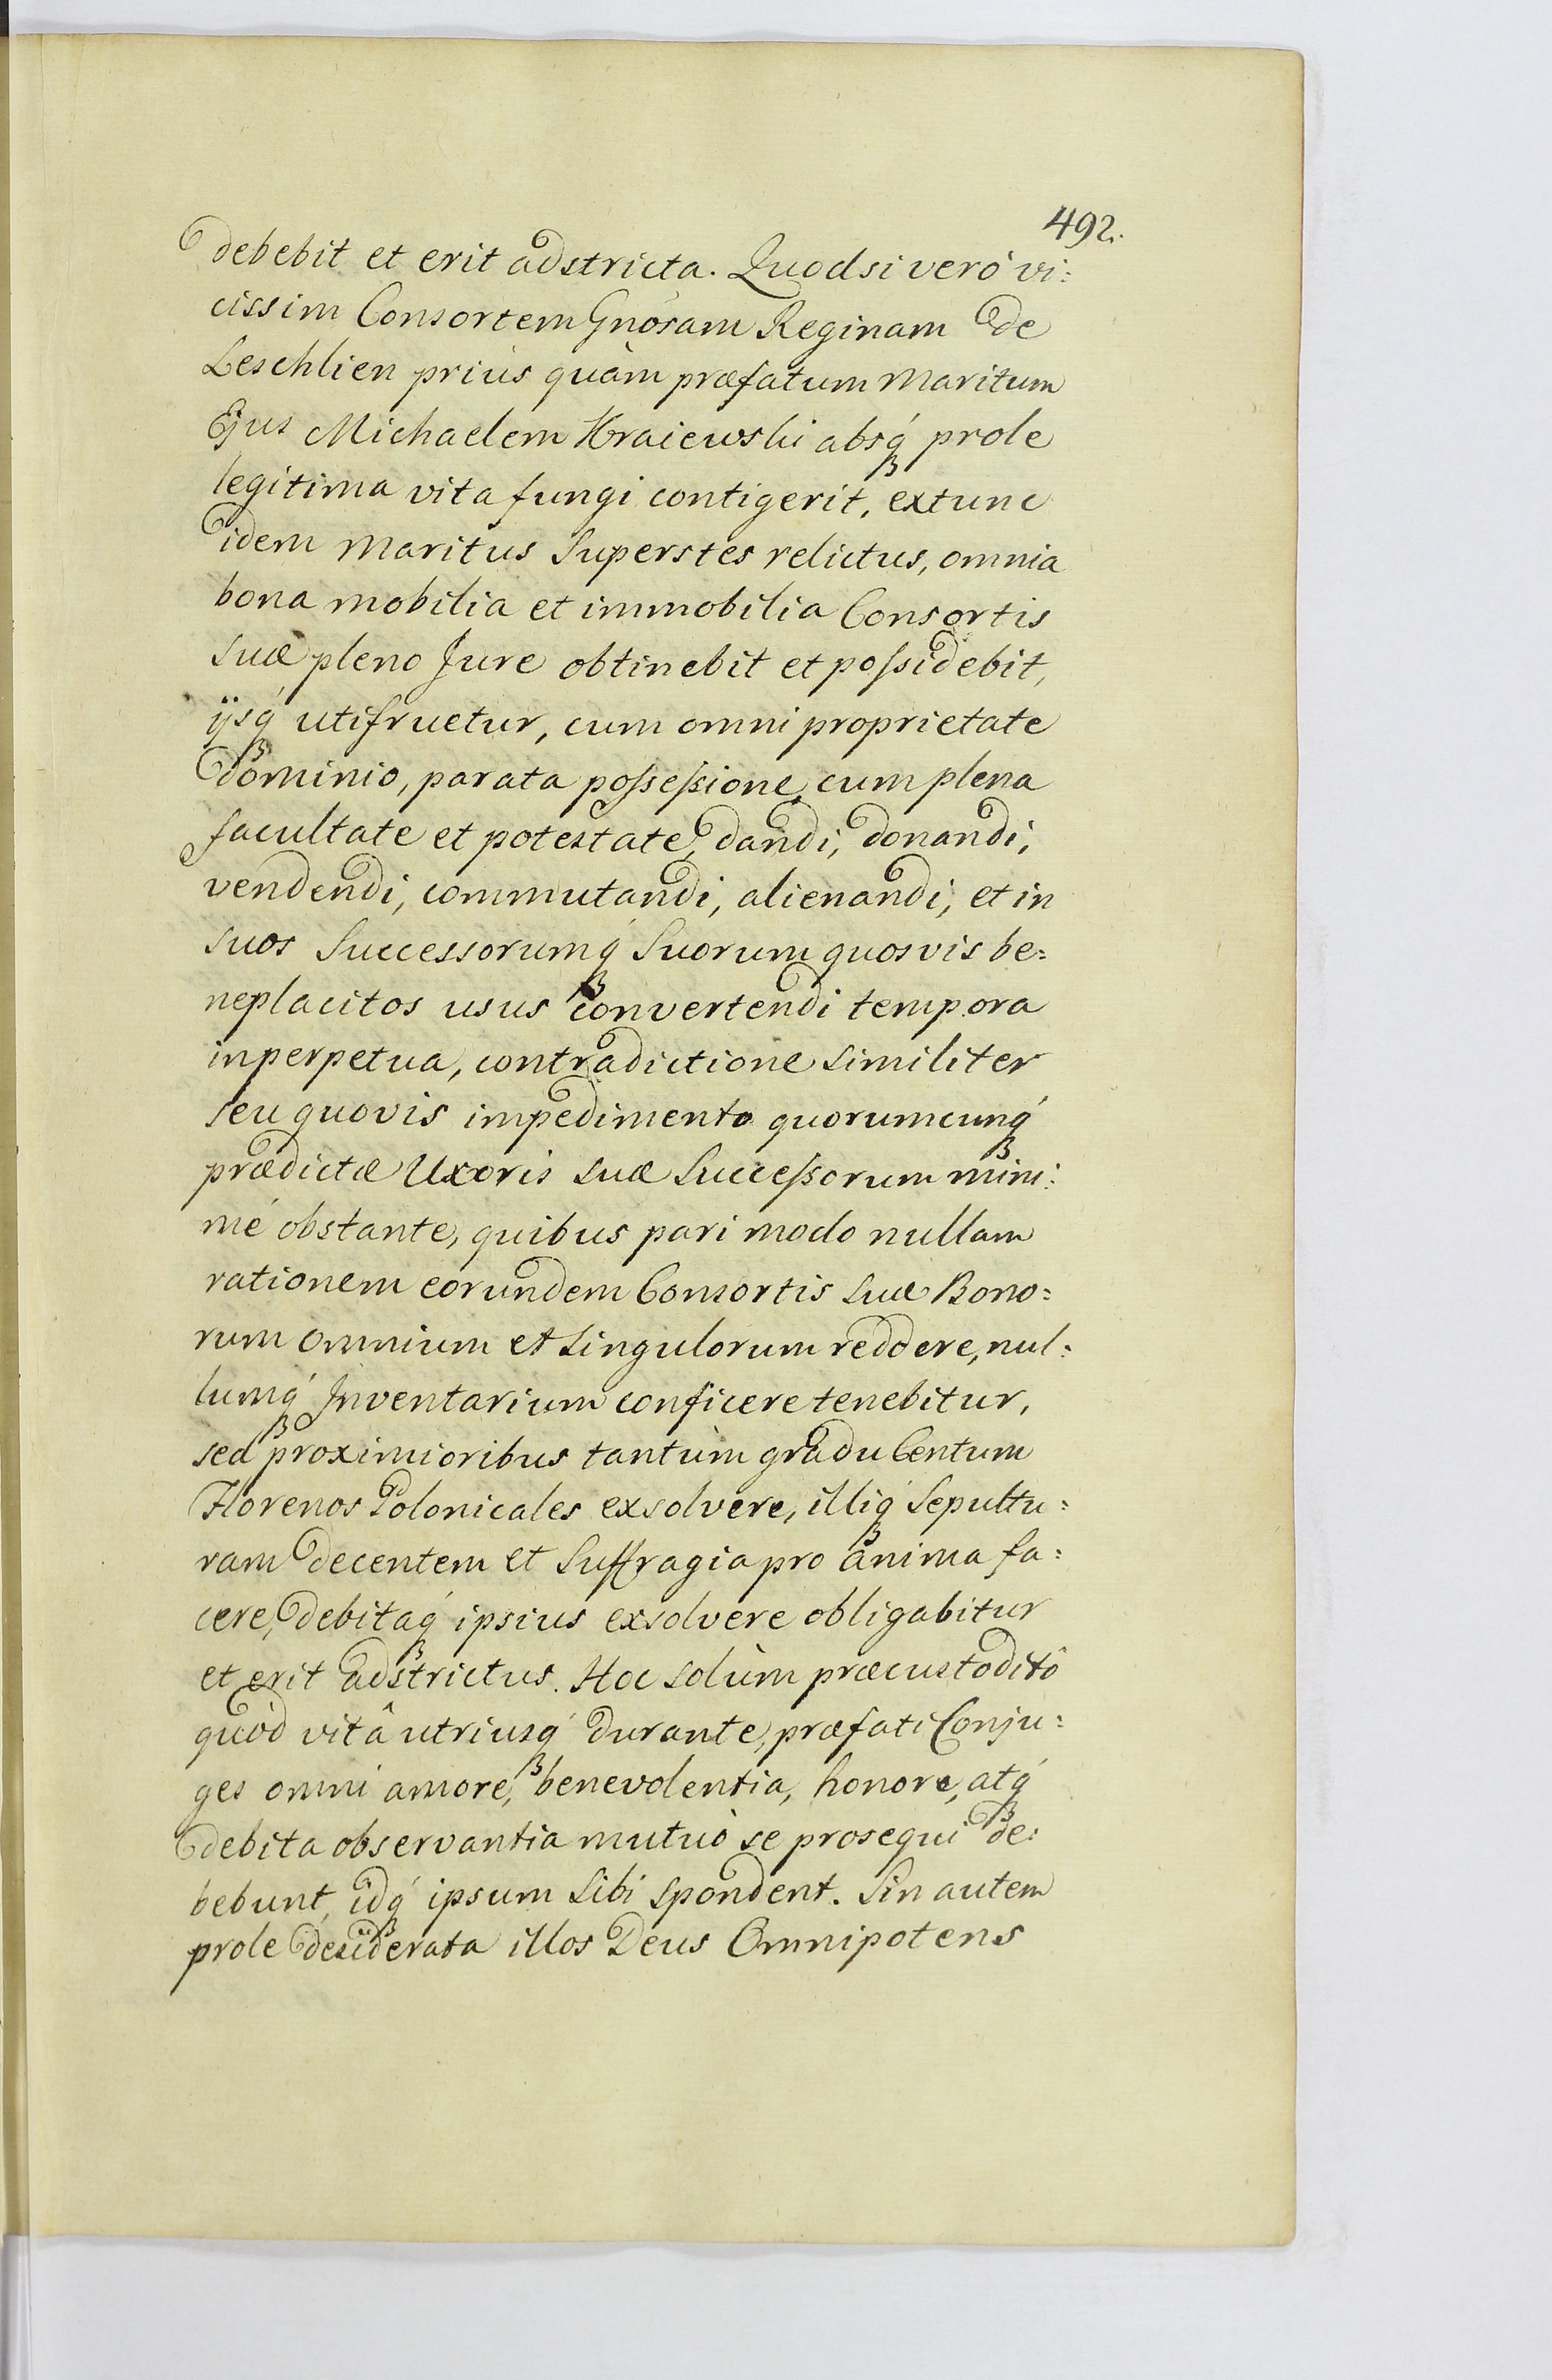 492.
debebit et erit adstricta. Quodsi verò vi:
cissim Consortem Gnosam Reginam de
Leschlien priùs quàm præfatum Maritum
Ejus Michaelem Kraiewski absq́ prole
legitima vita fungi contigerit, extunc
idem Maritus Superstes relictus, omnia
bona mobilia et immobilia Consortis
suæ pleno Jure obtinebit et poſsidebit,
ijsq́ utifruetur, cum omni proprietate
dominio, parata poſseſsione, cum plena
facultate et potestate, dandi, donandi,
vendendi, commutandi, alienandi, et in
suos Successorumq́ Suorum quosvis be:
neplacitos usus convertendi tempora
inperpetua, contradictione similiter
seu quovis impedimento quorumcunq́
prædictæ Uxoris suæ Succeſsorum mini:
mé obstante, quibus pari modo nullam
rationem eorundem Consortis suæ Bono:
rum omnium et singulorum reddere, nul:
lumq́ Inventarium conficere tenebitur,
sed proximioribus tantùm gradu Centum
Florenos Polonicales exsolvere, illiq́ Sepultu:
ram decentem et Suffragia pro anima fa:
cere, debitaq́ ipsius exsolvere obligabitur
et erit adstrictus. Hoc solùm præcustoditô
quòd vitâ utriusq́ durante, præfati Conju:
ges omni amore, benevolentia, honore, atq́
debita observantia mutuò se prosequi de:
bebunt, idq́ ipsum sibi spondent. Sin autem
prole desiderata illos Deus Omnipotens